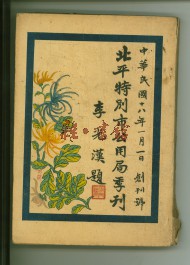 中華民國十八年一月一日 創刊號
北平特別市公用局季刊
李光漢題